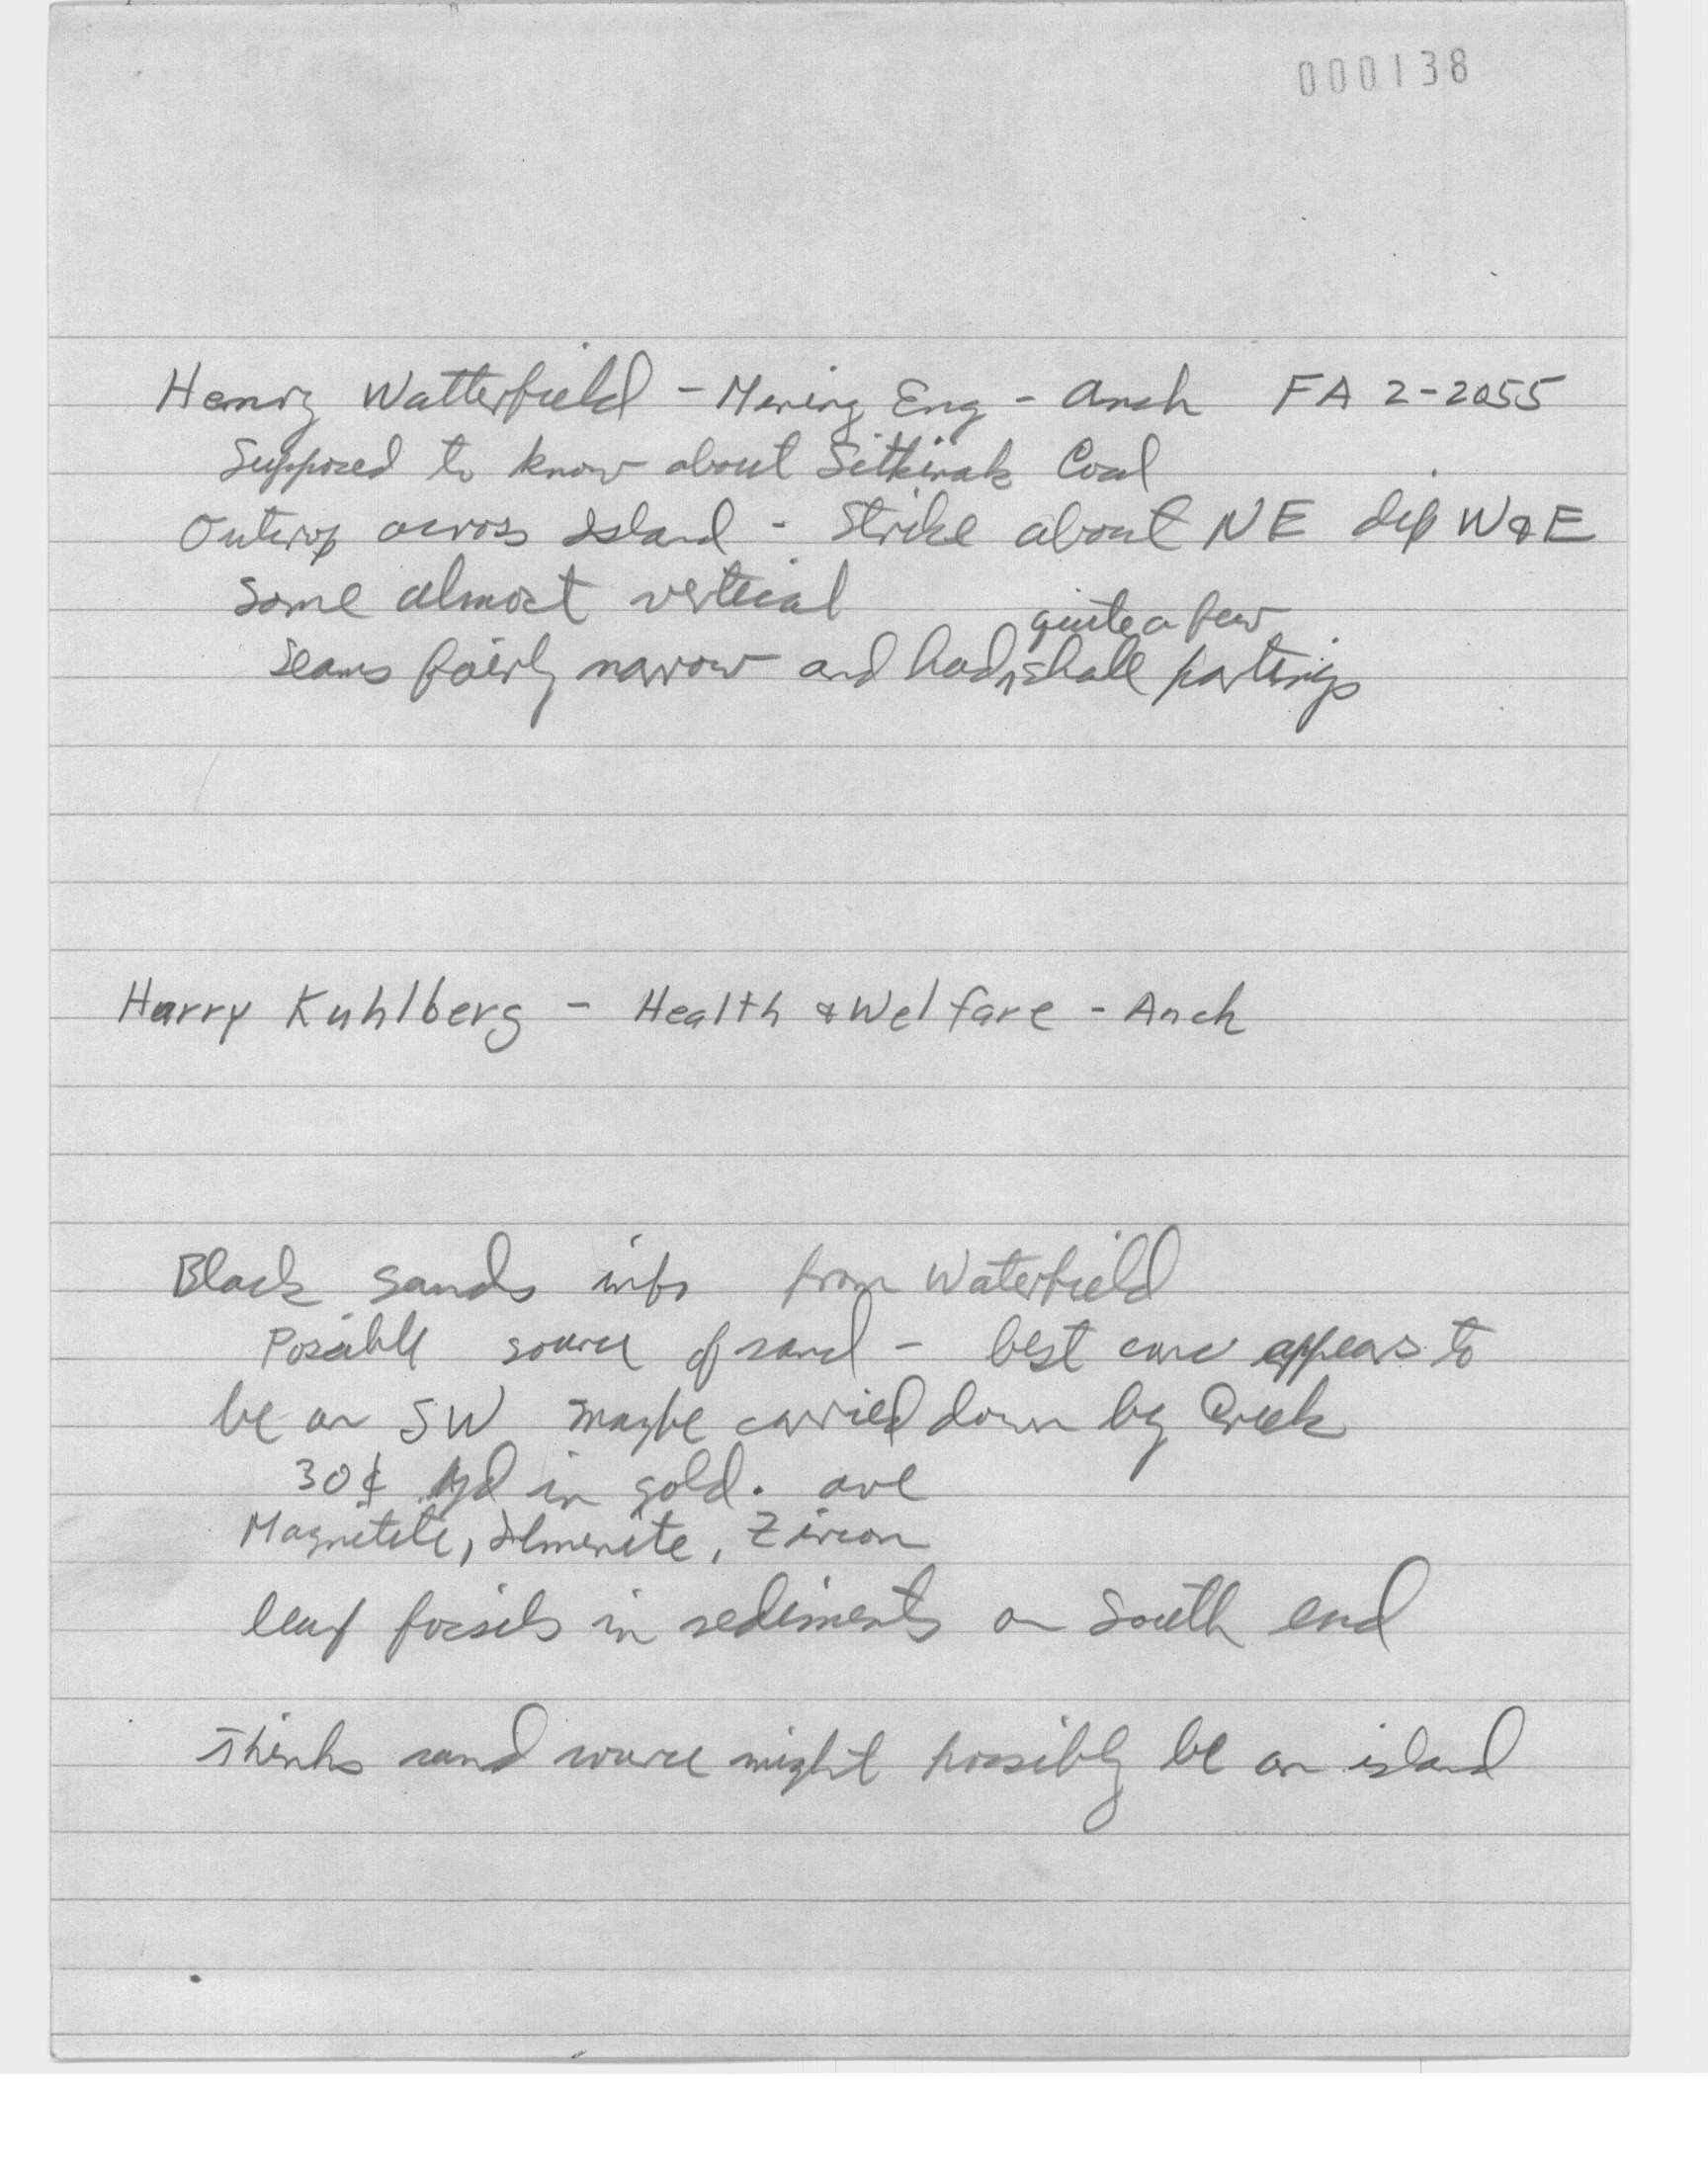 000138
Henry Watterfield - Mining Eng - Anch FA 2-2055
Supposed to know about Sitkinak Coal
Outcrop across Island - Strike about NE dip W & E
Some almost vertical
quite a few
Seams fairly narrow and had ^ shall partings
Harry Kuhlberg - Health & Welfare - Anch
Black sands info from Waterfield
Possible source of sand - best conc appears to
be on SW maybe carried down by Creek
30¢ yd in gold. ave
Magnetite, Ilmenite, Zircon
leaf fossils in sediments on South end
Thinks sand source might possibly be on island